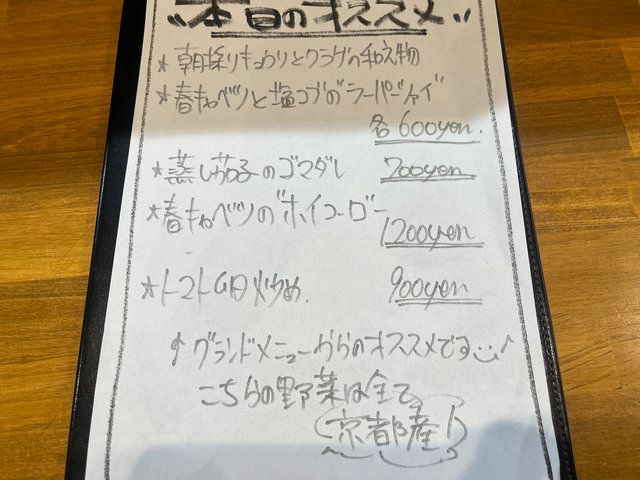 本日のオススメ
★朝採りキュウリとクラゲの和え物
★春キャベツと塩コブの"ラーパーツァイ"
各600yen.
★蒸し茄子のゴマダレ 700yen
★春キャベツの"ホイコーロー"
1200yen
★トマト旨炒め. 900yen
↑グランドメニューからのオススメです♪
こちらの野菜は全て
京都産!